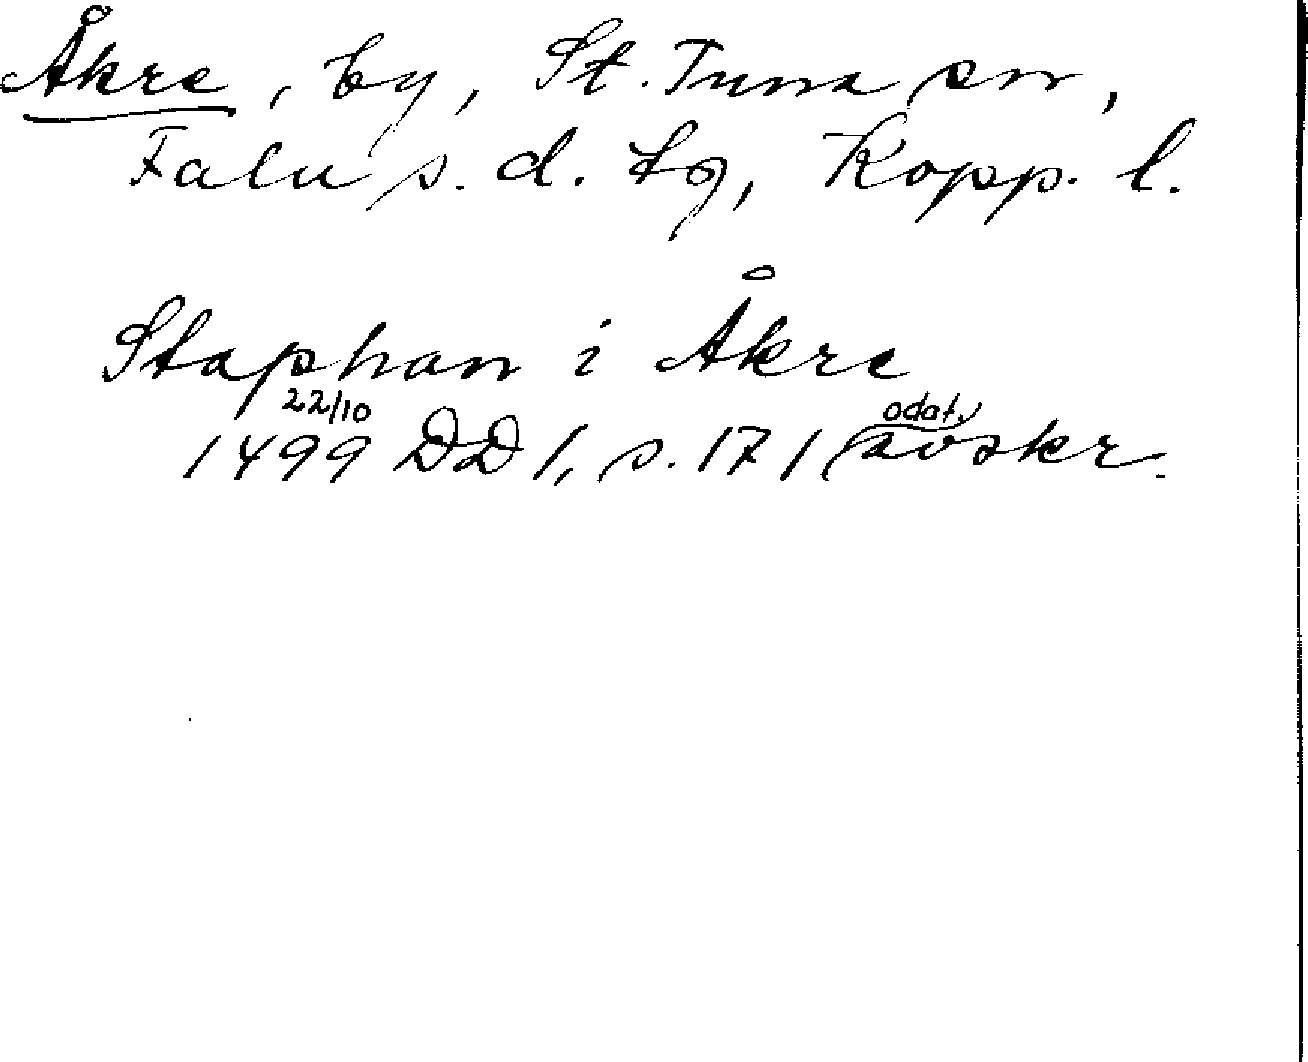 Åkre, by, St. Tuna sn,
Falu s. d. tg, Kopp. l.
Staphan i Åkre
22/10 odat.
1499 DD 1, s. 171 avskr.